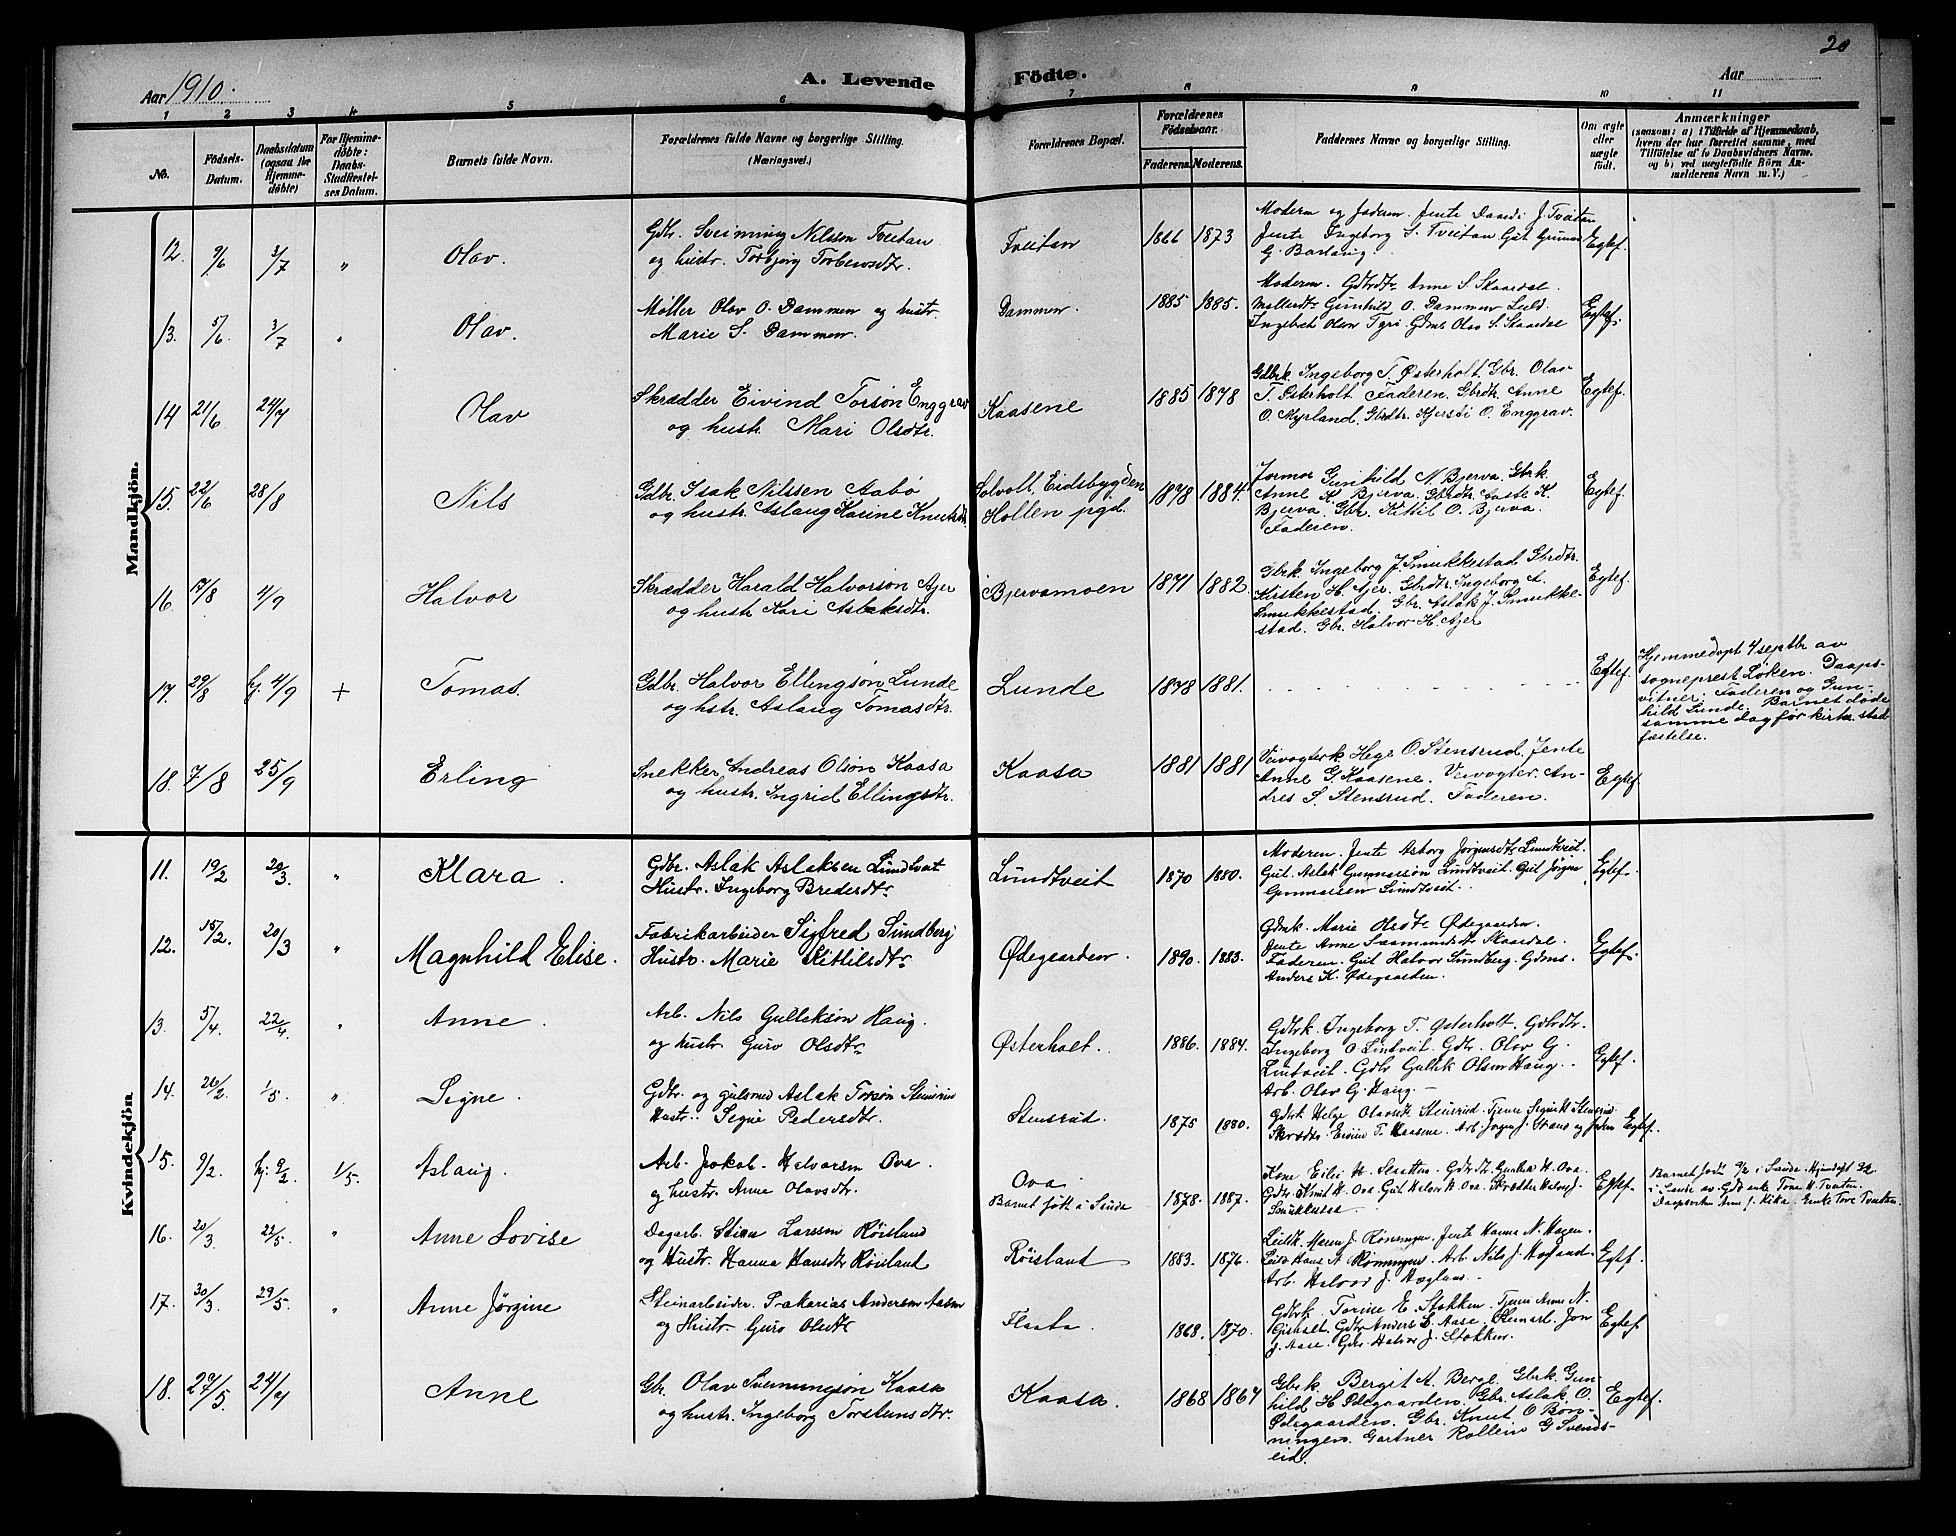 20
Aar 1910.
A. Levende
Födte.
Aar
1 2 3 4 5 6 7 8 9 10 11
No.
Födsels-Datum.
Daabsdatum (ogsaa for Hjemmedöbte)
For Hjemmedöbte: Daabs-Stadfæstelses Datum.
Barnets fulde Navn.
Forældrenes fulde Navne og borgerlige Stilling.
(Næringsvei.)
Forældrenes Bopæl.
Forældrenes Födselsaar.
Faderens. Moderens.
Faddernes Navne og borgerlige Stilling.
Om ægte eller uægte födt.
Anmærkninger
(saasom: a) i Tilfælde af Hjemmedaab, hvem der har forrettet samme, med Tilföielse af to Daabsvidners Navne, og b) ved uægtefödte Börn Anmelderens Navn m. V.)
Mandkjön.
12. 9/6 3/7 " Olav.
Gdbr. Sveinung Nilssøn Tveitan
og hustr. Torbjørg Torbersdtr.
Tveitan 1866 1873
Moderen og faderen. Jente Daardi J. Tveitan
Jente Ingeborg S. Tveitan Gut Gunnar
G. Barlaug. Egtef.
13. 5/6 3/7 " Olav.
Møller Olav O. Dammen og hustr.
Marie S. Dammen.
Dammen. 1885 1885.
Moderen. Gdbrdtr Anne S. Skaardal.
Møllerdtr Gunhild O. Dammen
Ingebret Olsen Gdms Olav S. Skaardal
Egtef.
14 21/6 24/7 Olav
Skrædder Eivind Torsøn Enggrav
og hustr. Mari Olsdtr.
Kaasene 1885 1878
Gdbrk Ingeborg T. Østerholt. Gbr. Olav
T. Østerholt. Faderen. Gbrdtr. Anne
O. Myrland. Gbrdtr. Kjersti O. Enggrav.
Egtef.
15. 22/6 28/8 Nils
Gdbr. Isak Nilssen Aabø
og hustr. Aslaug Karine Knutsdtr.
Solvolt, Eidsbygden
Hollen pgd. 1878 1884.
Formor Gunhild N. Bjerva. Gbrk.
Anne K. Bjerva. Gbrdtr. Aaste K.
Bjerva. Gbr. Kittil O. Bjerva.
Faderen. Egtef.
16 17/8 4/9 Halvor
Skrædder Harald Halvorsøn Ajer
og hustr. Kari Aslaksdtr.
Bjervamoen 1871 1882.
Gbrk. Ingeborg J. Smukkestad Gbrdtr.
Kirsten H. Ajer. Gbrdtr. Ingeborg A.
Smukkestad. Gbr. Aslak J. Smukkestad.
Gbr. Halvor H. Ajer
Egtef.
17. 29/8 hj. 4/9 + Tomas.
Gdbr. Halvor Ellingsøn Lunde
og hstr. Aslaug Tomasdtr.
Lunde 1878 1881.
Egtef.
Hjemmedøpt 4 septbr av
sogneprest Løken. Daapsvitner:
Faderen og Gunhild
Lunde. Barnet døde
samme dag før kirk. stadfæstelse.
18. 7/8 25/9 Erling
Snekker Andreas Olsøn Kaasa
og hustr. Ingrid Ellingsdtr.
Kaasa 1881 1881
Veivogterk Hege O. Stensrud. Jente
Anne G. Kaasene. Veivogter. Andres
S. Stensrud. Faderen.
Egtef.
Kvindekjön
11. 19/2 20/3. " Klara.
Gdbr. Aslak Aslaksen Lundtveit
Hustr. Ingeborg Bredesdtr.
Lundtveit 1870 1880.
Moderen. Jente Asborg Jørgensdtr Lundtveit.
Gut. Aslak Gunnarssøn Lundtveit. Gut Jørgen
Gunnarssen Lundtveit. Egtef.
12. 15/2. 20/3 " Magnhild Elise.
Fabrikarbeider Sigfred Sundberg
Hustr. Marie Kittilsdtr.
Ødegaarden. 1890. 1883.
Gdbrk. Marie Olsdtr Ødegaarden.
Jente Anne Sæmundsdtr Skaardal.
Faderen. Gut Halvor Sundberg. Gdms.
Anders K. Ødegaarden. Egtef.
13. 5/4 22/4. " Anne.
Arb. Nils Gulleksøn Haug.
og hustr. Guro Olsdtr.
Østerholt. 1886. 1884.
Gdbrk. Ingeborg T. Østerholt. Gdbrdtr.
Ingeborg O. Lintveit. Gdbr. Olav G.
Lintveit. Gdbr Gullik Olsen Haug.
Arb. Olav G. Haug. Egtef.
14. 26/2 1/5. " Signe.
Gdbr. og gulsmed Aslak Torsøn Stensrud
Hustr. Signe Pedersdtr.
Stensrud. 1875 1880.
Gdbrk Helge Olavsdtr Stensrud. Tjener Signe
Egtef.
15. 9/2 hj. 9/2 1/5. Aslaug.
Arb. Jakob Halvorsen Ova.
og hustr. Anne Olavsdtr.
Ova.
Barnet født i Sauda
1878. 1887.
Kone Eilei H. Gdbrdtr. Gunhild H. Ova.
Gdbr. Knut H. Ova. Gut Halvor H. Ova. Skrædder Halvor J.
Egtef.
Barnet født 9/2 i Sauda. Hjemdøpt 9/2
i Sauda av Gdb enke Tone H. Tveiten.
16. 20/3 22/5. " Anne Lovise
Dagarb. Stian Larssen Røisland
og Hustr. Hanna Hansdtr Røisland
Røisland 1883. 1876.
Jente Hanna N. Hagen.
Arb. Nils J. Høgland
Arb. Halvor J. Høgland. Egtef.
17. 30/3. 29/5. " Anne Jørgine
Steinarbeider. Sakarias Andersen Aasen
og Hustr. Guro Olsdtr
Flaata. 1868. 1870.
Gdbrk. Torine E. Stokken. Tjener Anne N.
Gisholt. Gdbr Anders S. Aase. Stenarb. Jon
J. Aase. Gdbr Halvor J. Stokken. Egtef.
18. 27/5 24/7 Anne
Gbr. Olav Sveinungsøn Kaasa
og hustr. Ingeborg Torstensdtr.
Kaasa. 1868 1867
Gbrk. Bergit A. Berge. Gbrk. Gunhild
H Ødegaarden. Gbr. Aslak O.
Ødegaarden. Gbr. Knut O Rønningen.
Gartner Rollein G Svendseid.
Egtef.